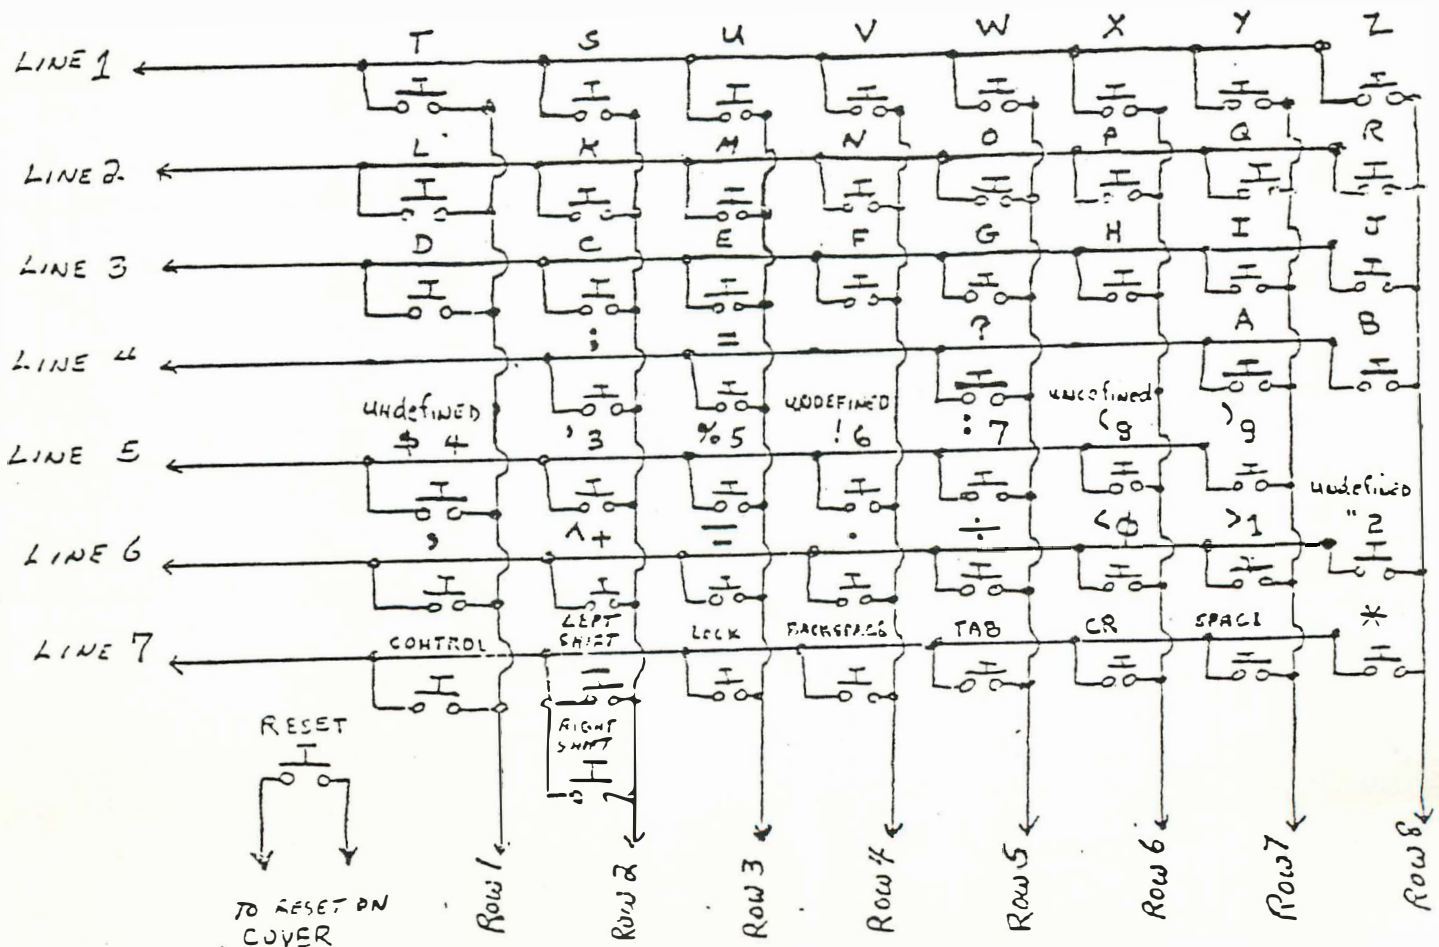 T S U V W X Y Z
LINE 1
L K M N O P Q R
LINE 2
D C E F G H I J
LINE 3
; = ? A B
LINE 4
UNDEFINED UNDEFINED UNDEFINED
$ 4 ' 3 % 5 ! 6 : 7 ( 8 ) 9
LINE 5
UNDEFINED
, ^ + = . ÷ < 0 > 1 " 2
LINE 6
CONTROL LEFT SHIFT LOCK BACKSPACE TAB CR SPACE *
LINE 7
RIGHT SHIFT
RESET
TO RESET ON
COVER
ROW 1 ROW 2 ROW 3 ROW 4 ROW 5 ROW 6 ROW 7 ROW 8